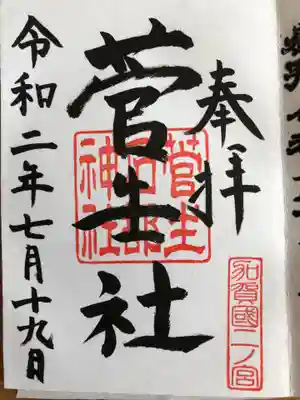 奉拝
加賀國一ノ宮
菅生社
菅生
石部
神社
令和二年七月十九日